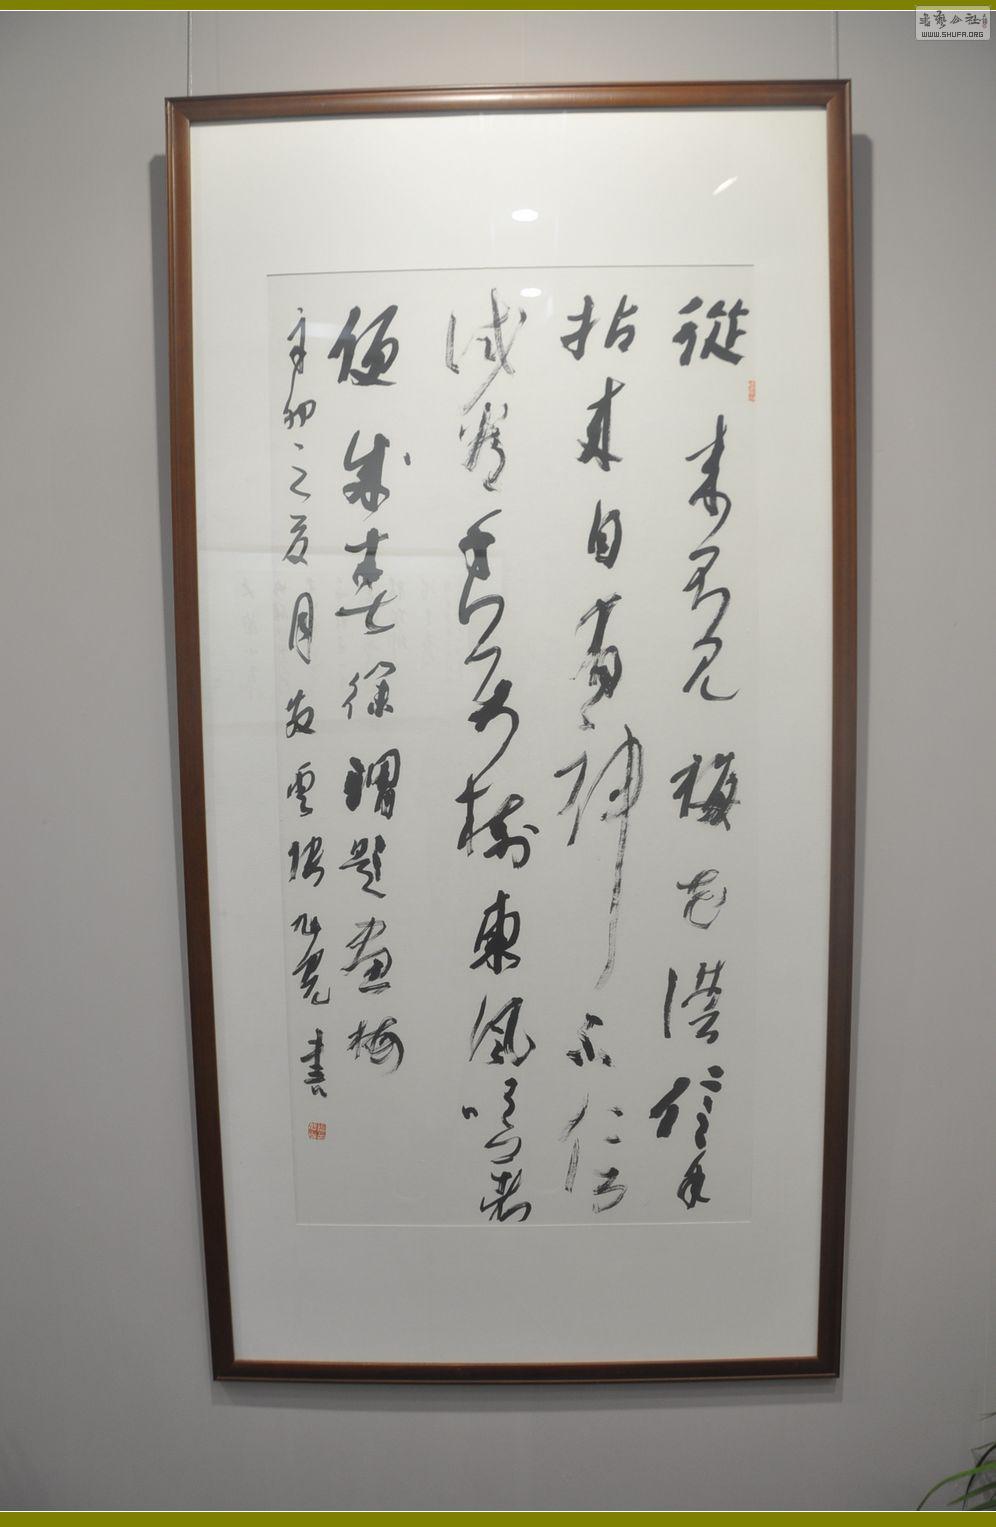 書藝公社
WWW.SHUFA.ORG
從来不見梅花譜信手
拈来自有神不信
試看千万樹東風吹着
便成春徐渭題畫梅
辛卯之夏月 雲 書